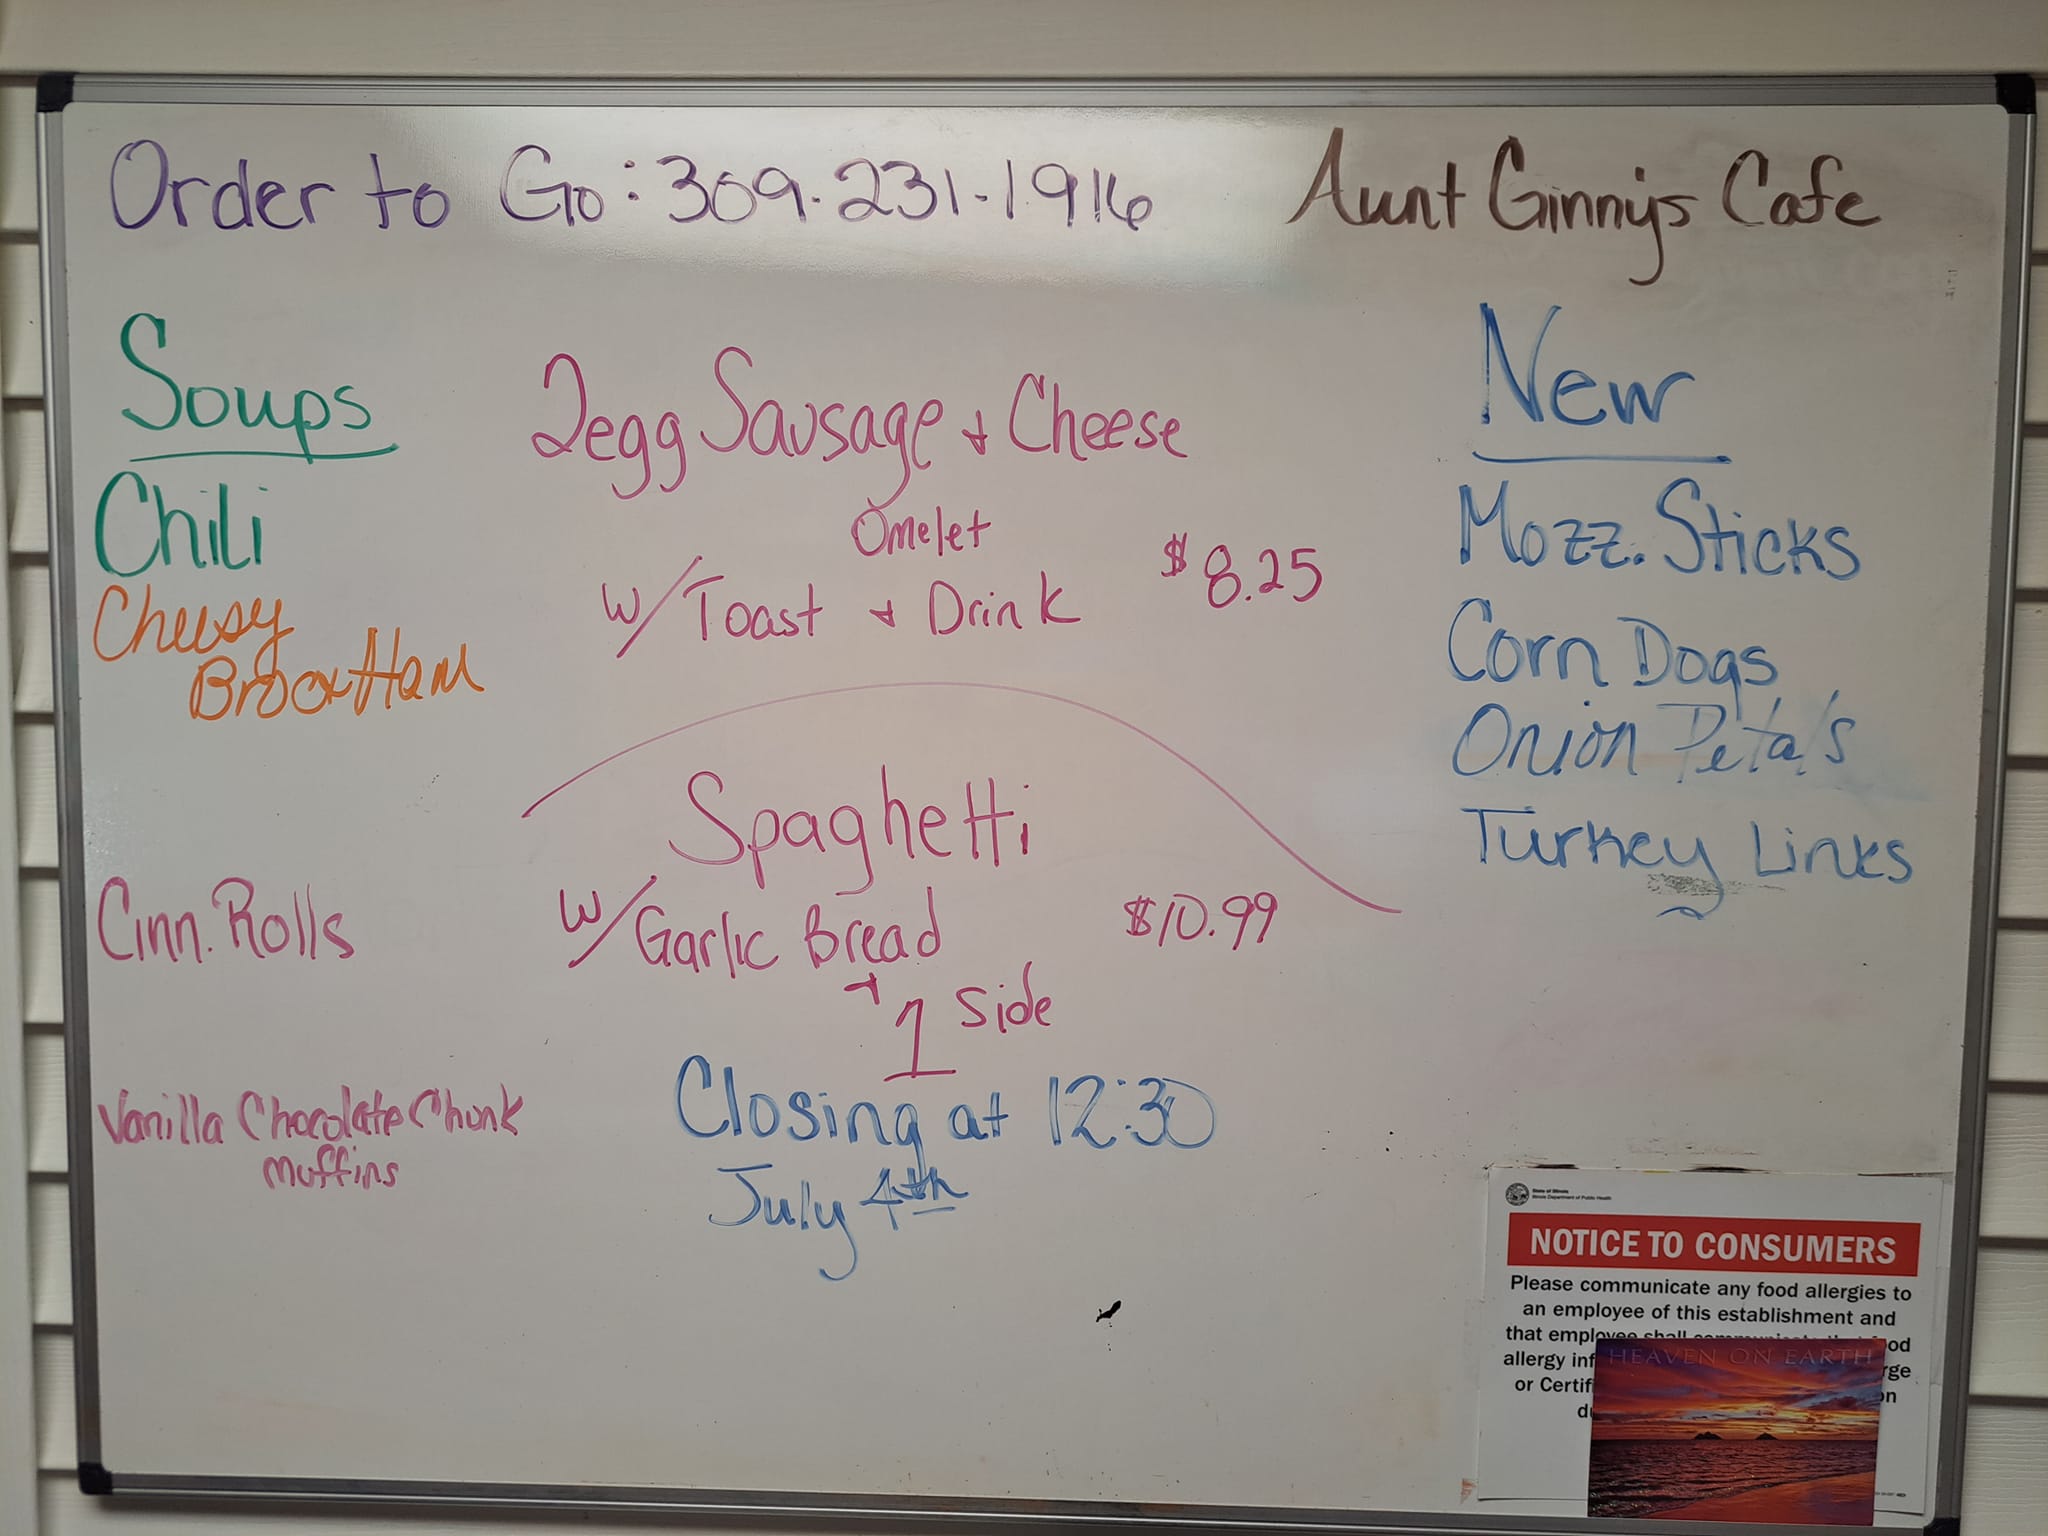 Order to Go: 309-231-1916
Aunt Ginny's Cafe
Soups
Chili
Cheesy
Broc + Ham
Cinn. Rolls
Vanilla Chocolate Chunk
Muffins
2egg Sausage + Cheese
Omelet
W/ Toast + Drink $8.25
Spaghetti
W/ Garlic Bread $10.99
+ 1 Side
Closing at 12:30
July 4th
New
Mozz. Sticks
Corn Dogs
Onion Petals
Turkey Links
State of Illinois
Illinois Department of Public Health
NOTICE TO CONSUMERS
Please communicate any food allergies to
an employee of this establishment and
that employee shall
allergy
or
HEAVEN ON EARTH